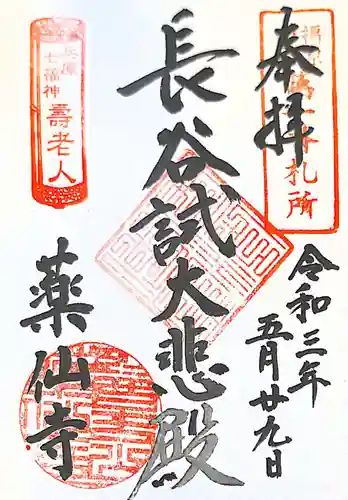 奉拝
令和三年
五月廿九日
長谷試大悲殿
兵庫
七福神
壽老人
薬仙寺
札所